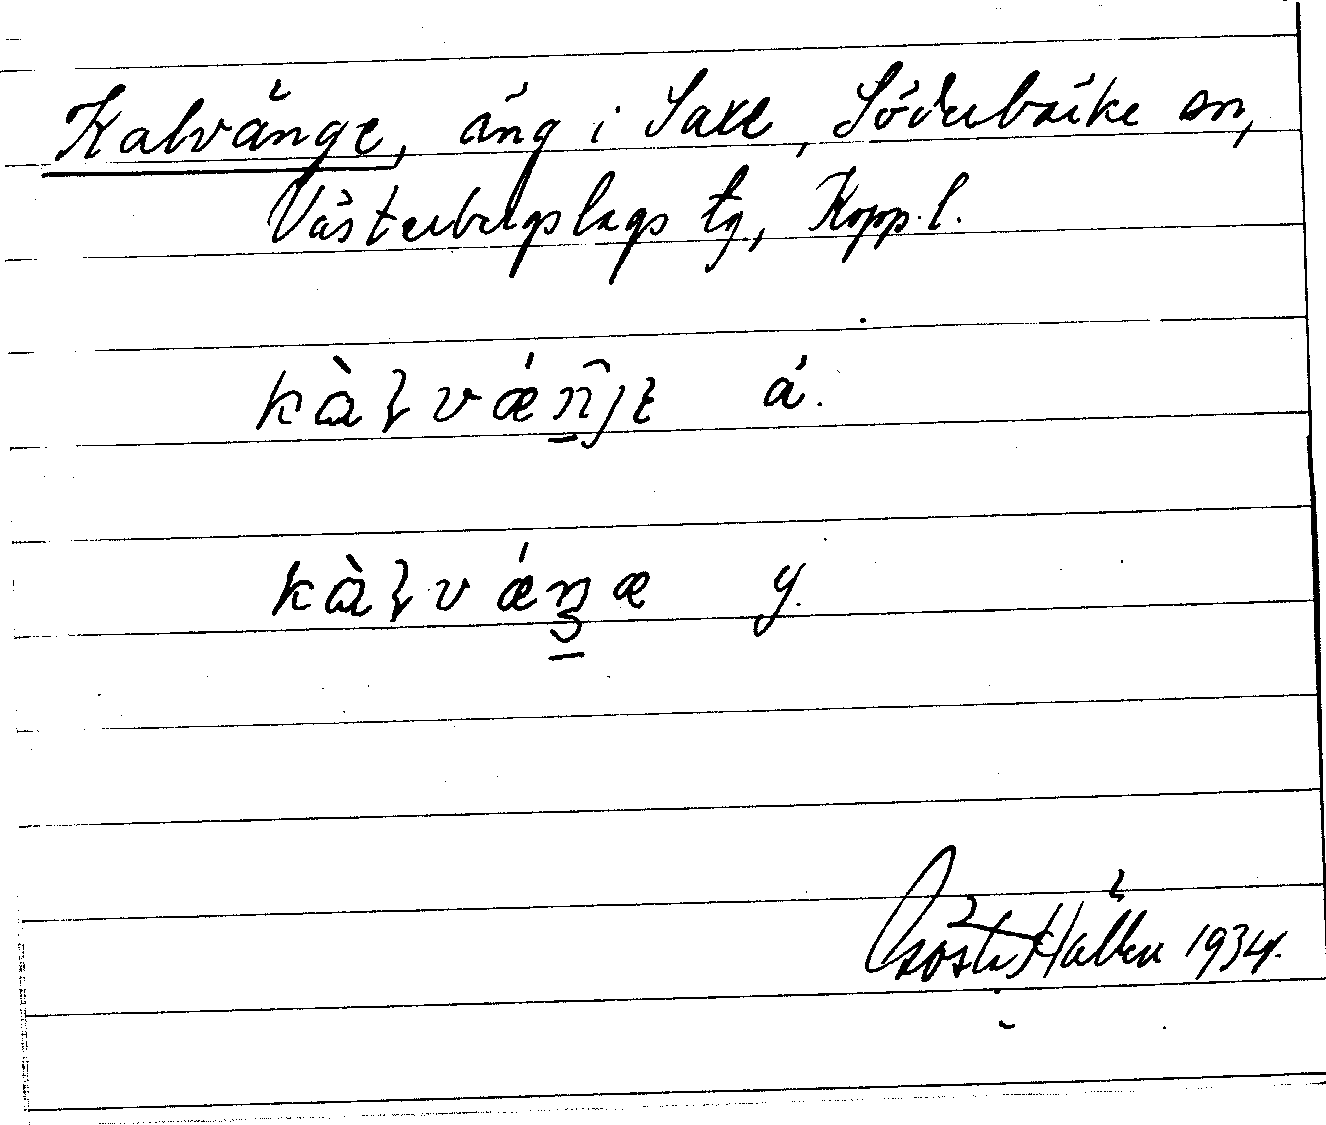 Kalvänge, äng i Saxe, Söderbärke sn,
Västerbergslags tg, Kopp. l.
kàlvǽn̂jε ä.
kàlvǽŋæ y.
Gösta Hällen 1934.